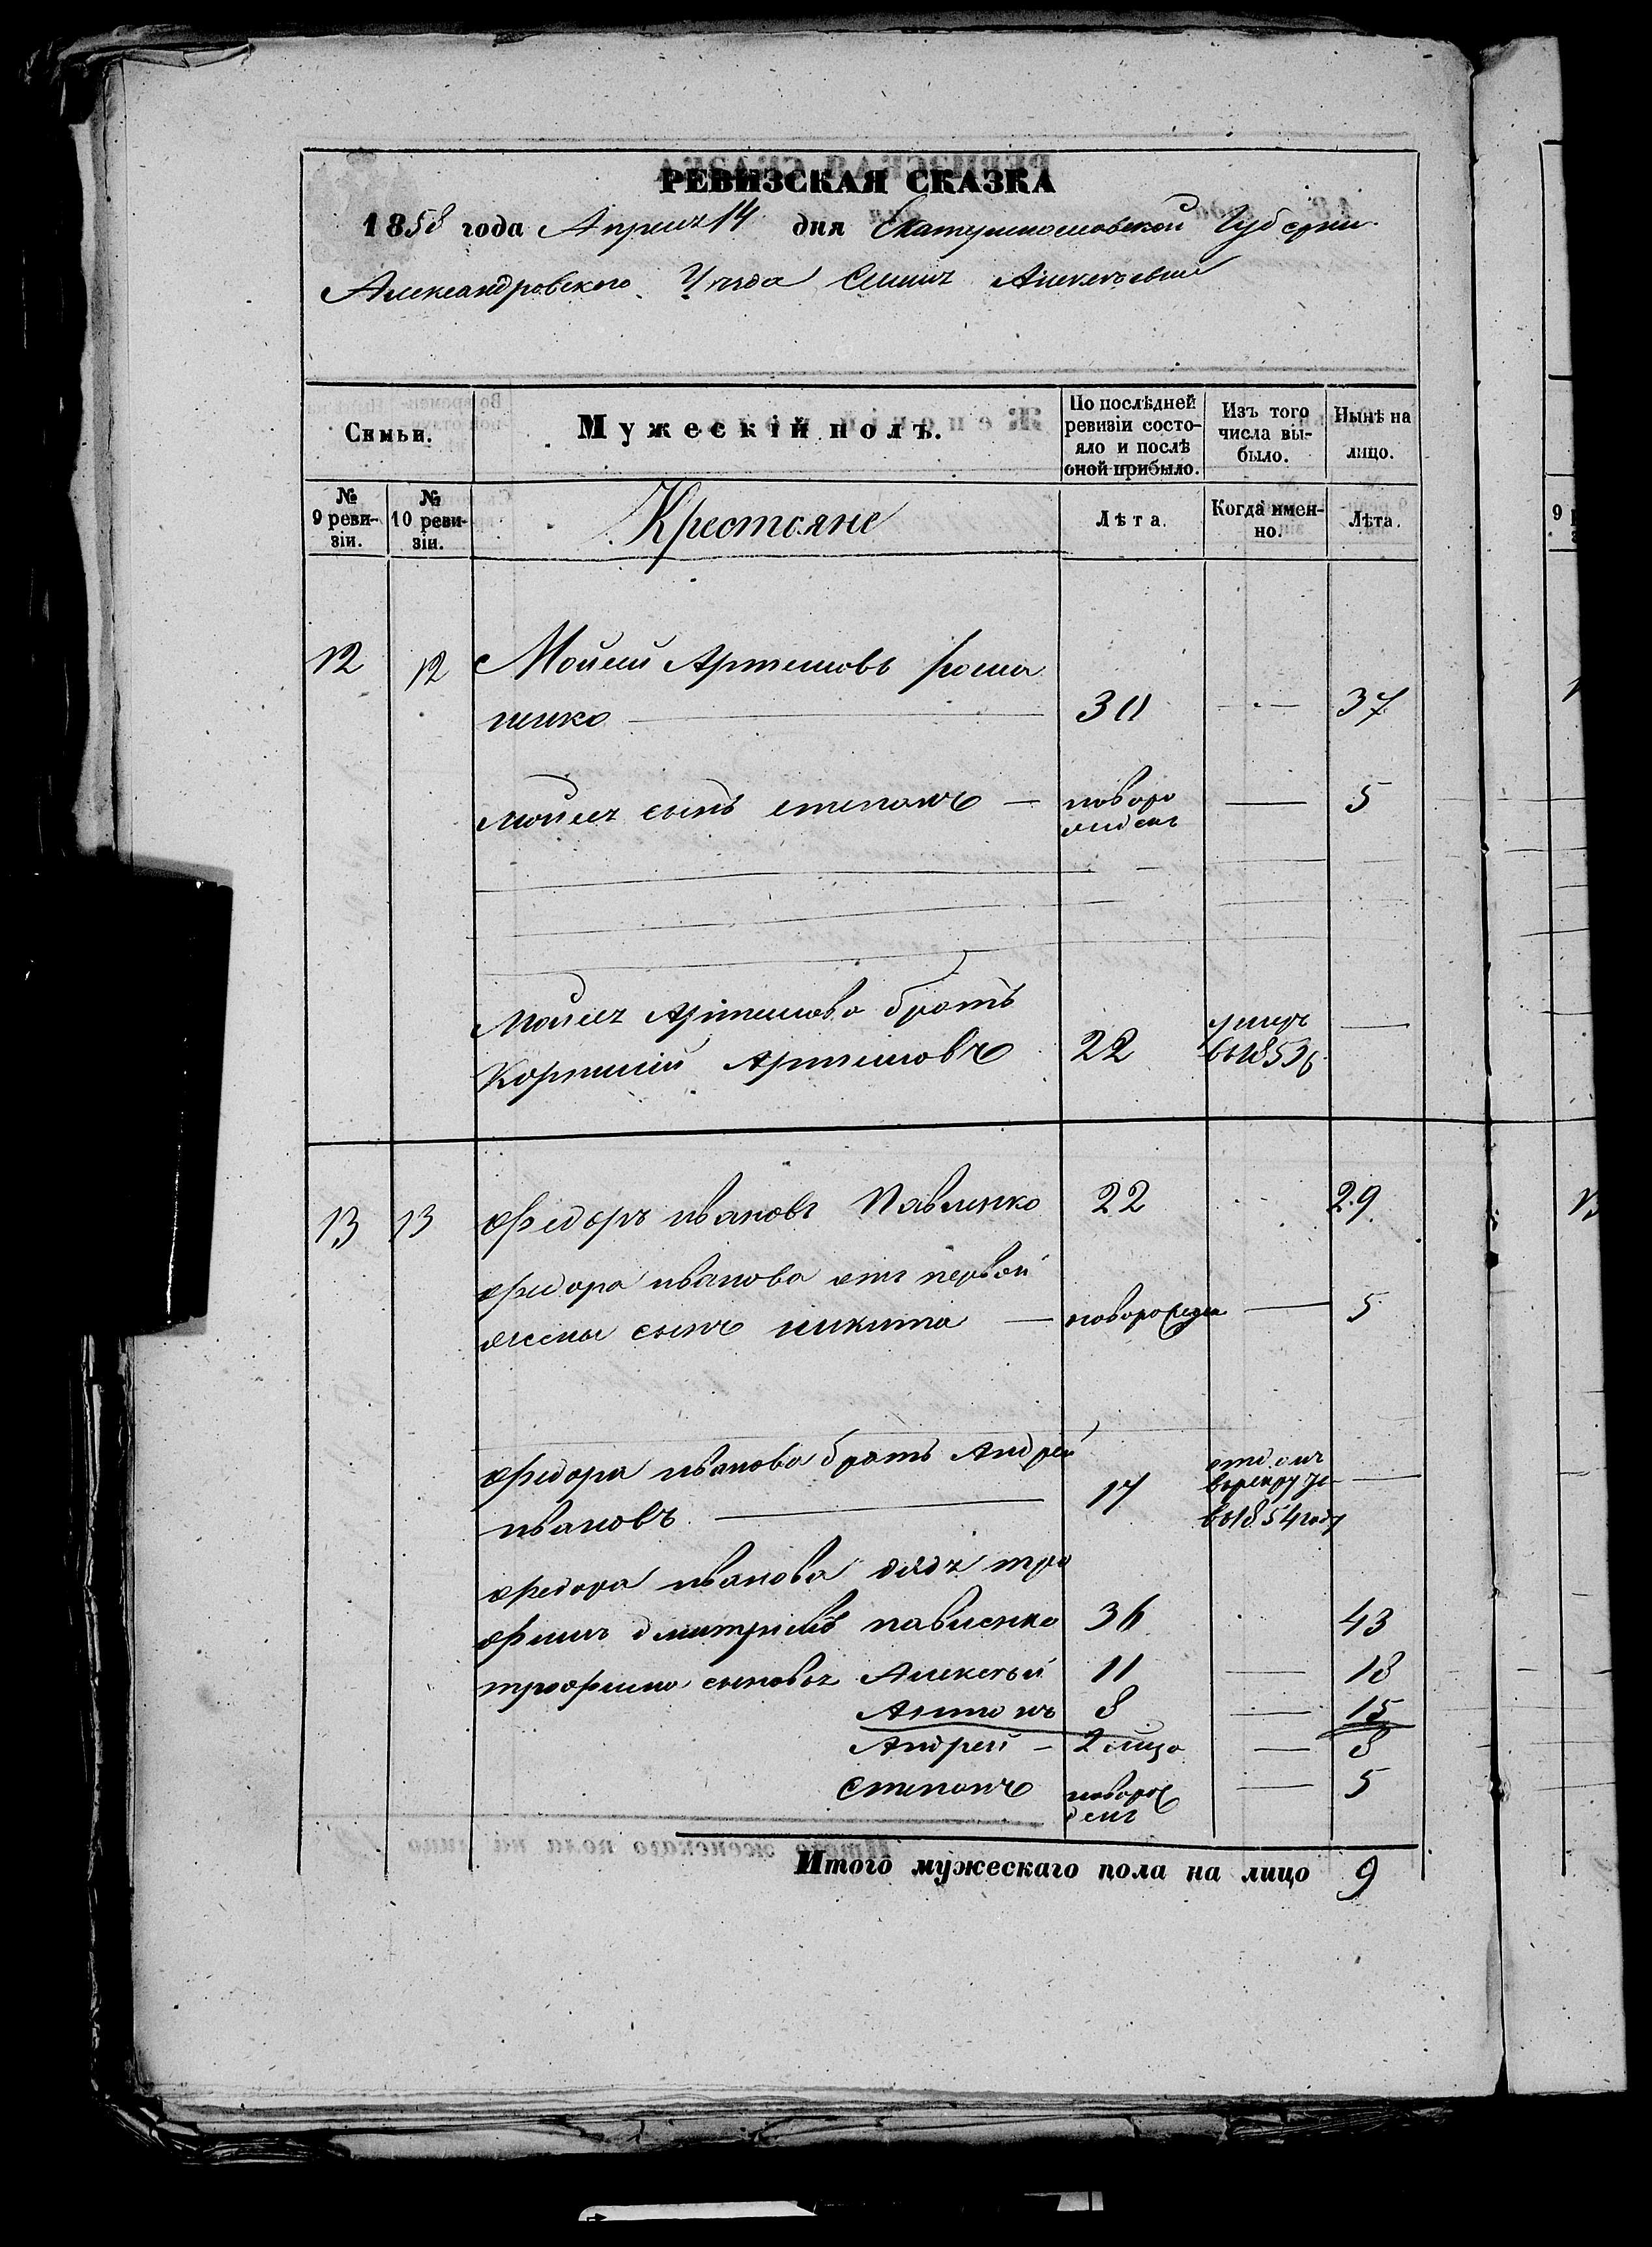 РЕВИЗСКАЯ СКАЗКА
1858 года Апреля 14 дня Екатеринославской Губерніи
Александровского Уезда Алексеевки
Семьи.
Мужескій полъ.
По послѣдней ревизіи состояло и послѣ оной прибыло.
Изъ того числа выбыло.
Нынѣ на лицо.
№ 9 ревизіи.
№ 10 ревизіи.
Крестьяне
Лѣта.
Когда именно.
Лѣта.
12 12 Мойсей Артемовъ Рома
ненко 30 37
Мойсея сынъ степанъ новоро
жденъ 5
Мойсея Артемова братъ
Корнилий Артемовъ 22 умеръ
въ 1853г —
13 13 Федоръ ивановъ Павленко 22 29
Федора иванова отъ первой
жены сынъ никита новорожден 5
Федора иванова братъ Андрей
ивановъ 17 отданъ
в рекруты
въ 1854 году —
Федора иванова дядя тро
фимъ дмитриевъ павленко 36 43
трофима сыновья Алексей 11 18
Антонъ 8 15
Андрей 2 месяца 8
Степанъ новорож
денъ 5
Итого мужескаго пола на лицо 9